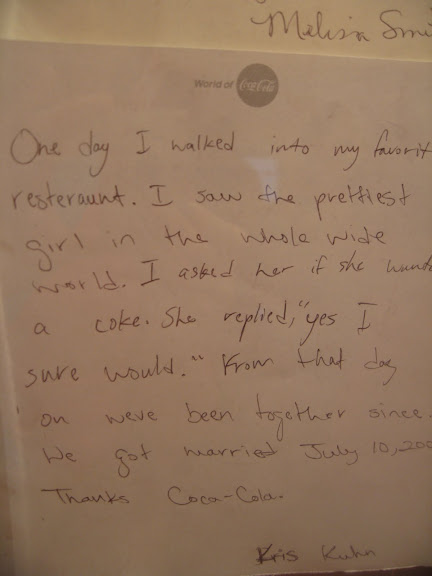 Melissa Smi
World of Coca-Cola
One day I walked into my favorit
resteraunt. I saw the prettiest
girl in the whole wide
world. I asked her if she wunte
a coke. She replied, "yes I
sure would." From that day
on weve been together since.
We got married July 10, 200
Thanks Coca-Cola.
Kris Kuhn